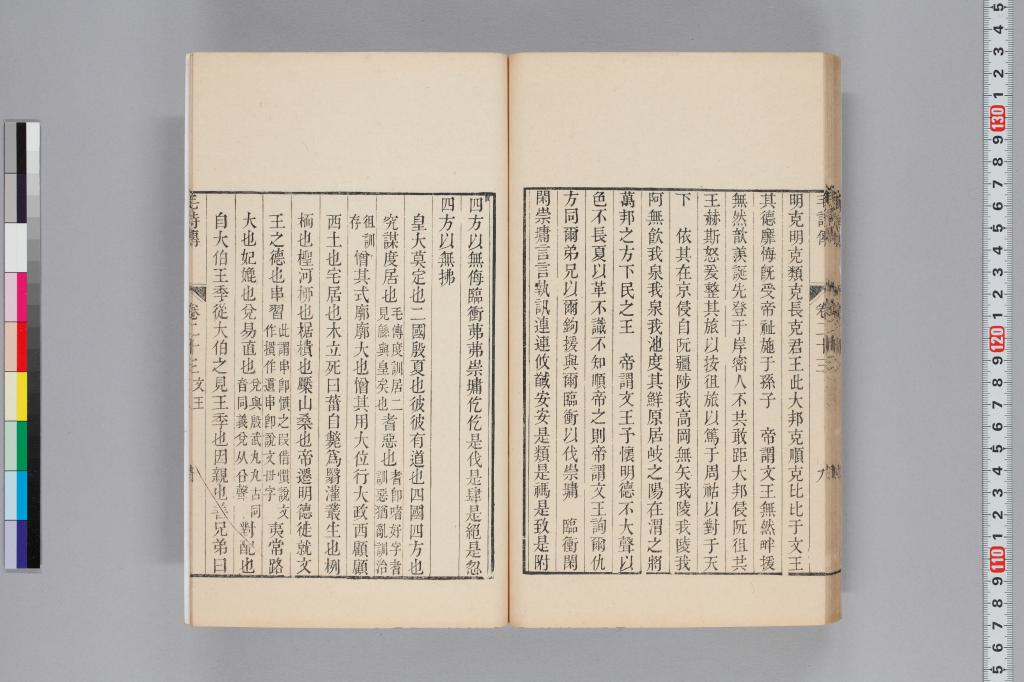 明克明克類克長克君王此大邦克順克比比于文王
其德靡悔旣受帝祉施于孫子　帝謂文王無然畔援
無然歆羨誕先登于岸密人不共敢距大邦侵阮徂共
王赫斯怒爰整其旅以按徂旅以篤于周祜以對于天
下　依其在京侵自阮疆陟我高岡無矢我陵我陵我
阿無飮我泉我泉我池度其鮮原居岐之陽在渭之將
萬邦之方下民之王　帝謂文王予懷明德不大聲以
色不長夏以革不識不知順帝之則帝謂文王詢爾仇
方同爾弟兄以爾鉤援與爾臨衝以伐崇墉　臨衝閑
閑崇墉言言執訊連連攸馘安安是類是禡是致是附
四方以無侮臨衝茀茀崇墉仡仡是伐是肆是絕是忽
四方以無拂
皇大莫定也二國殷夏也彼彼有道也四國四方也
究謀度居也毛傳度訓居二見緜與皇矣也耆惡也耆卽嗜好字耆訓惡猶亂訓治
徂訓存憎其式廓廓大也憎其用大位行大政西顧顧
西土也宅居也木立死曰菑自斃爲翳灌叢生也栵
栭也檉河柳也椐樻也檿山桑也帝遷明德徙就文
王之德也串習此謂串卽慣之叚借慣說文作摜作遺串卽說文毌字夷常路
大也妃媲也兌易直也兌與殷武丸丸古同音同義兌从㕣聲對配也
自大伯王季從大伯之見王季也因親也善兄弟曰
毛詩傳　卷二十三　文王
毛詩傳　卷二十三　九